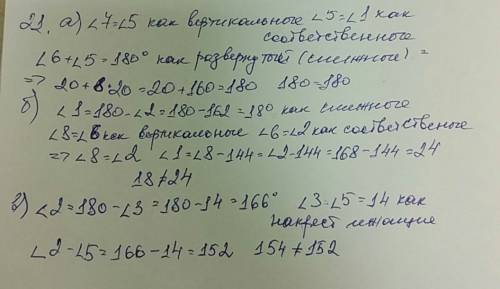 21. а) ∠7=∠5 как вертикальные ∠5=∠1 как
соответственного
∠6+∠5=180° как развернутой (смежное) =
=> 20+8·20=20+160=180 180=180
б) ∠1=180-∠2=180-162=18° как смежного
∠8=∠6 как вертикальные ∠6=∠2 как соответственое
=> ∠8=∠2 ∠1=∠8-144=∠2-144=168-144=24
18≠24
г) ∠2=180-∠3=180-14=166° ∠3=∠5=14 как
накрест лежащие
∠2-∠5=166-14=152 154≠152